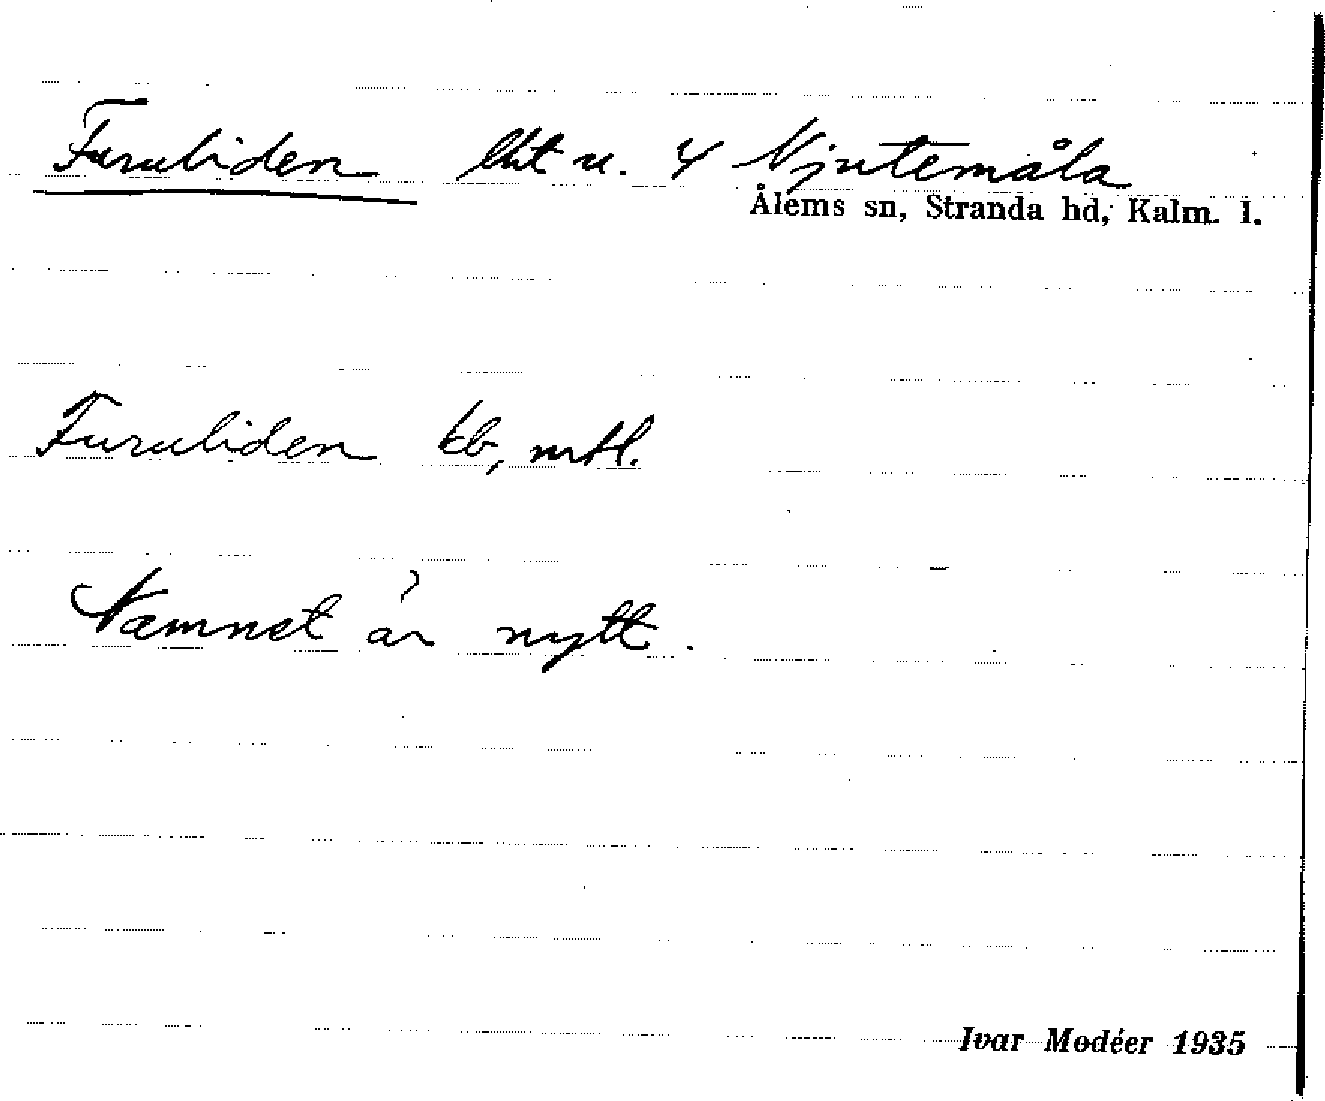 Furuliden lht u. 4 Njutemåla
Ålems sn, Stranda hd, Kalm. l.
Furuliden kb, mtl.
Namnet är nytt.
Ivar Modéer 1935